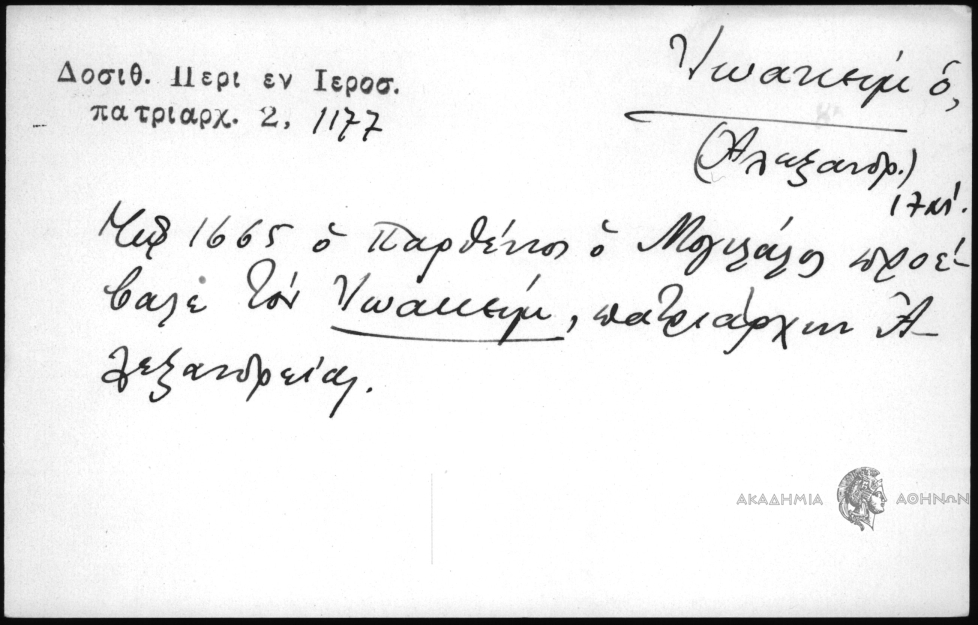 Δοσιθ. Περι εν Ιεροσ.
πατριαρχ. 2, 1177
Ἰωακεὶμ ὁ,
(Ἀλεξανδρ.)
17
1665 ὁ Παρθένιος ὁ Μογιλάλος προέ-
βαλε τὸν Ἰωακεὶμ, πατριάρχην Ἀ-
λεξανδρείας.
ΑΚΑΔΗΜΙΑ ΑΘΗΝΩΝ